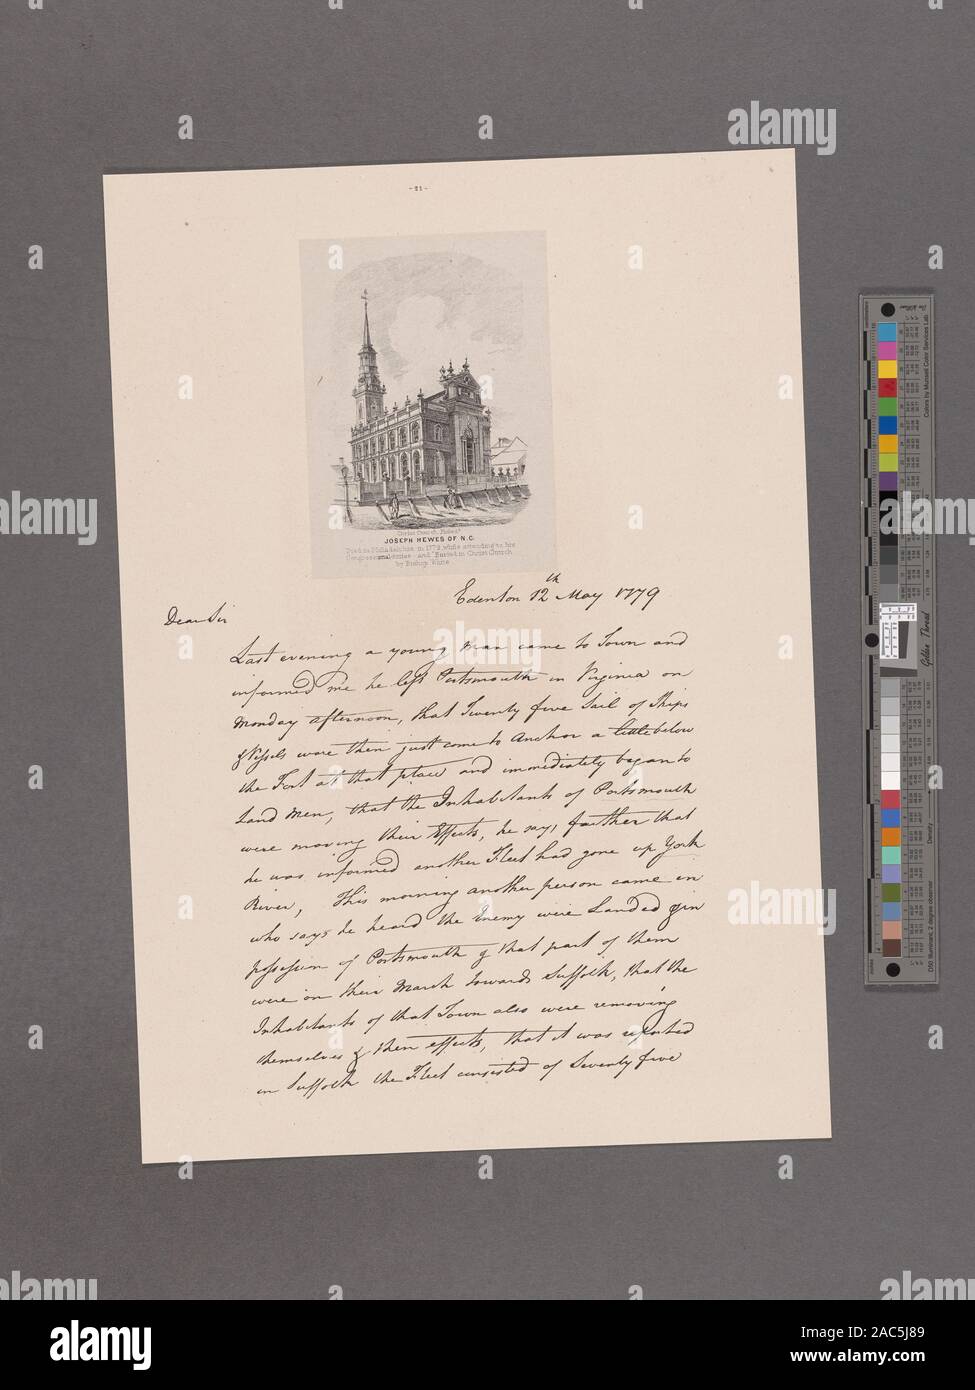 - 21 -
Christ Church, Philada
JOSEPH HEWES OF N.C.
Died in Philadelphia in 1779 while attending to his
Congressional duties and Buried in Christ Church
by Bishop White
Edenton 12th May 1779
Dear Sir
Last evening a young man came to Town and
informed me he left Portsmouth in Virginia on
Monday afternoon, that Twenty five Sail of Ships
& Vessels were then just come to Anchor a little below
the Fort at that place and immediately began to
Land Men, that the Inhabitants of Portsmouth
were moving their Effects, he says farther that
he was informed another Fleet had gone up York
River, This morning another person came in
who says he heard the Enemy were Landed & in
possession of Portsmouth & that part of them
were on their March towards Suffolk, that the
Inhabitants of that Town also were removing
themselves & their effects, that it was reported
in Suffolk the Fleet consisted of Seventy five
Colors by Munsell Color Services Lab
Golden Thread
Density
D50 Illuminant, 2 degree observer
a
alamy
alamy
Image ID: 2AC5J89
www.alamy.com